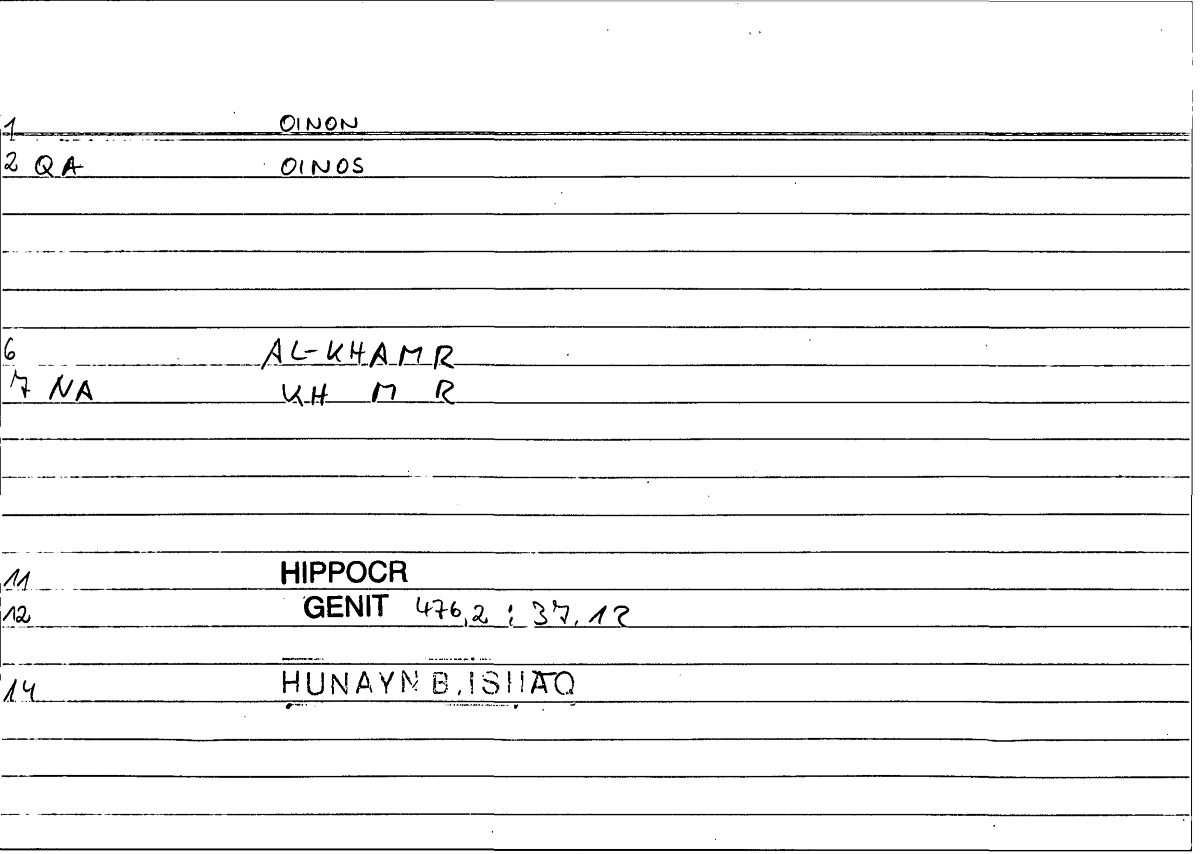 1 OINON
2 QA OINOS
6 AL-KHAMR
7 NA KH M R
11 HIPPOCR
12 GENIT 476,2 : 37,12
14 HUNAYN B. ISḤĀQ